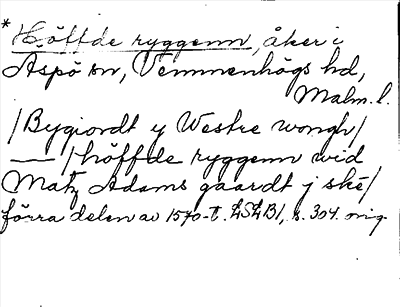 * Höffde ryggenn, åker i
Aspö sn, Vemmenhögs hd,
Malm. l.
/Bygiordt y Westre wongh/
—— /höffde ryggenn wid
Matz Adams gaardt j ské/
förra delen av 1570-t. LSLB1, s. 304. orig.